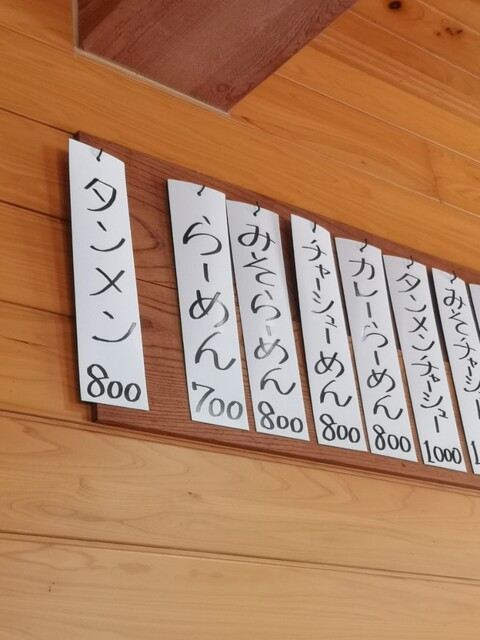 タンメン
800
らーめん
700
みそらーめん
800
チャーシューめん
800
カレーらーめん
800
タンメンチャーシュー
1000
みそチャーシ